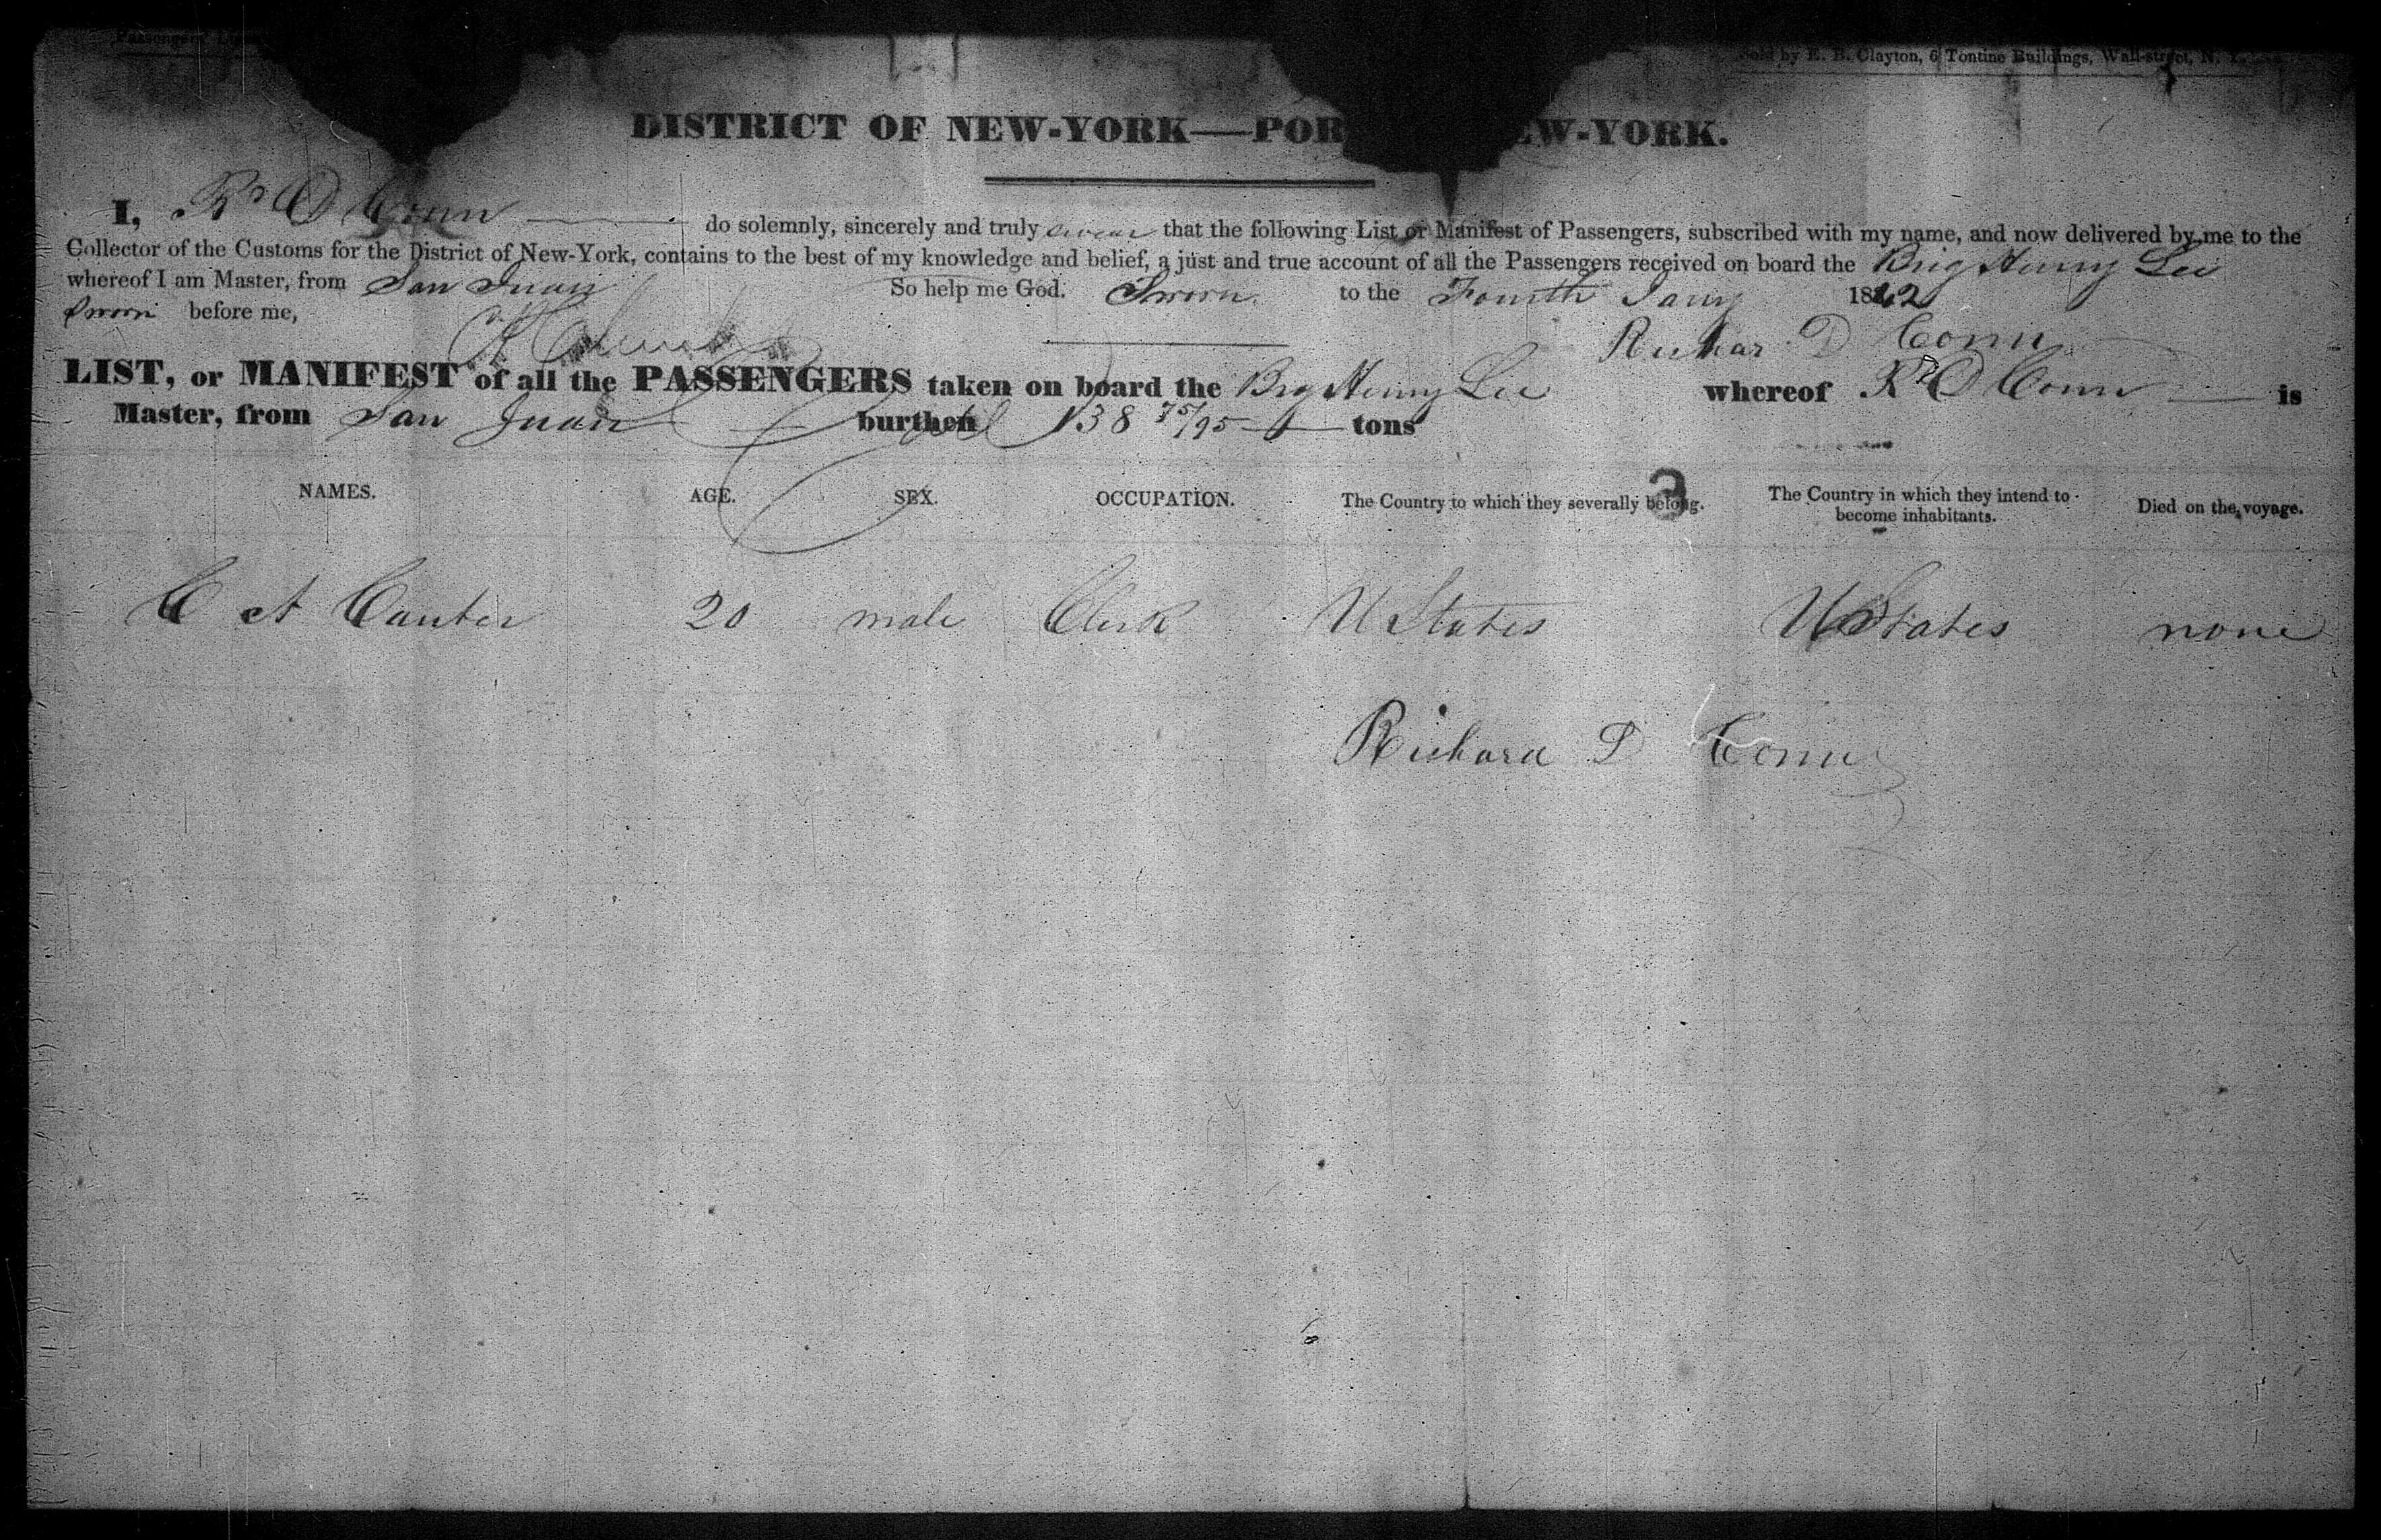 Passengers
Sold by E. B. Clayton, 6 Tontine Buildings, Wall-street, N. Y.
DISTRICT OF NEW-YORK—POR EW-YORK.
I, Rd D Conn do solemnly, sincerely and truly swear that the following List or Manifest of Passengers, subscribed with my name, and now delivered by me to the
Collector of the Customs for the District of New-York, contains to the best of my knowledge and belief, a just and true account of all the Passengers received on board the Brig Henry Lee
whereof I am Master, from San Juan So help me God. Sworn to the Fourth Jany 1842
Sworn before me,
Richar D Conn
LIST, or MANIFEST of all the PASSENGERS taken on board the Brig Henry Lee whereof Rd D Conn is
Master, from San Juan burthen 138 75/95 tons
NAMES. AGE. SEX. OCCUPATION. The Country to which they severally belong. The Country in which they intend to become inhabitants. Died on the voyage.
3
C A Canter 20 male Clerk U States U States none
Richard D Conn